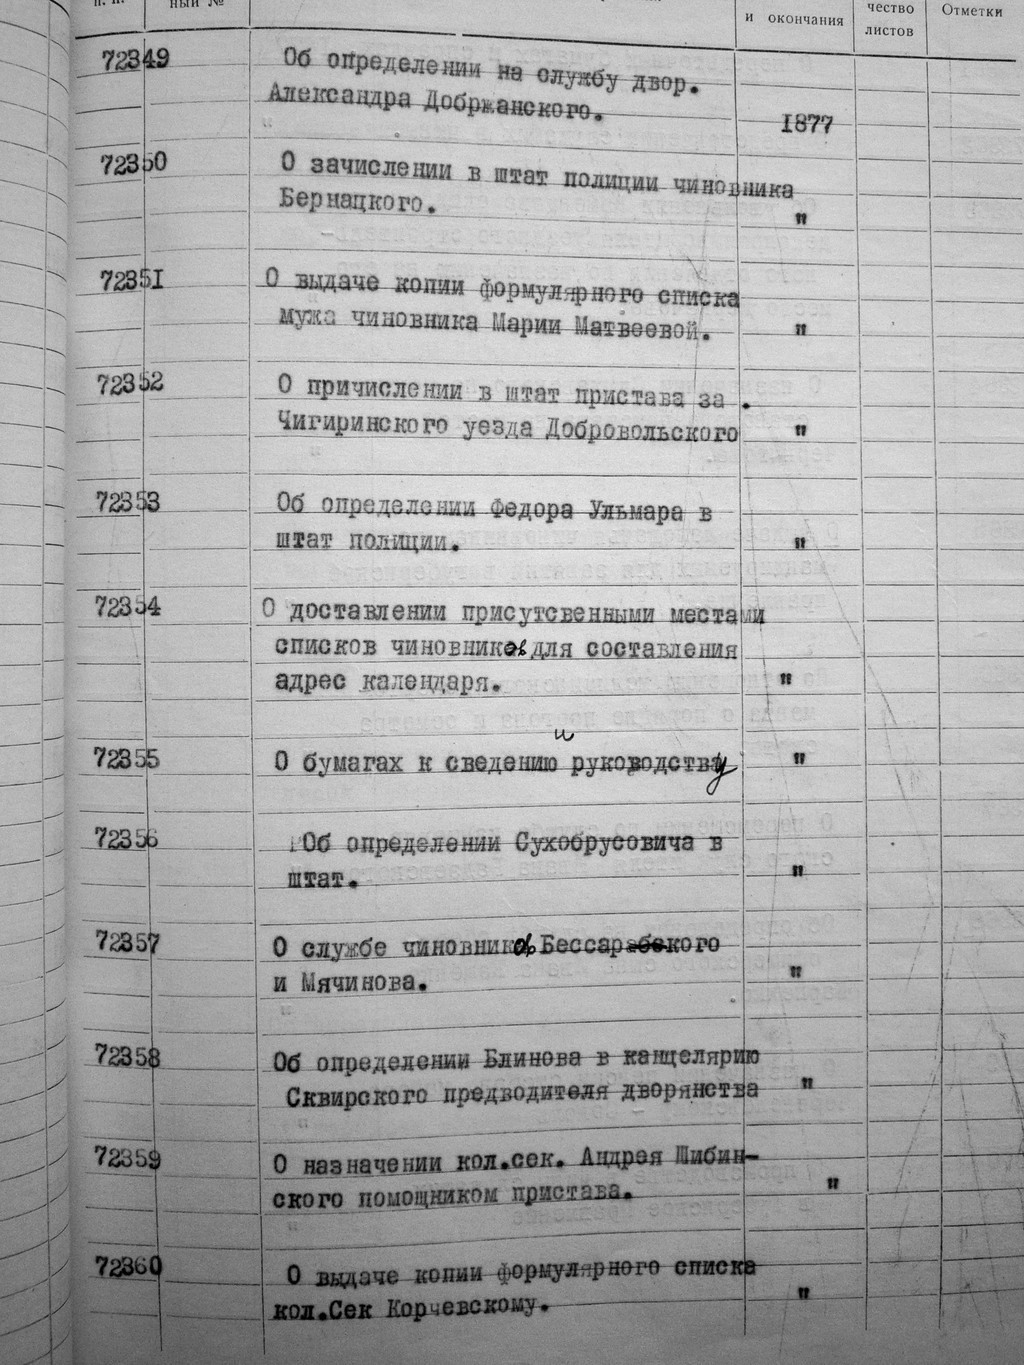 п. п. ный № и окончания чество листов Отметки
72349 Об определении на службу двор.
Александра Добржанского. 1877
72350 О зачислении в штат полиции чиновника
Бернацкого. "
72351 О выдаче копии формулярного списка
мужа чиновника Марии Матвеевой. "
72352 О причислении в штат пристава за .
Чигиринского уезда Добровольского "
72353 Об определении Федора Ульмара в
штат полиции. "
72354 О доставлении присутсвенными местами
списков чиновников для составления
адрес календаря. "
и
72355 О бумагах к сведению руководству "
72356 Об определении Сухобрусовича в
штат. "
72357 О службе чиновников Бессарабского
и Мячинова. "
72358 Об определении Блинова в канцелярию
Сквирского предводителя дворянства "
72359 О назначении кол.сек. Андрея Шибин-
ского помощником пристава. "
72360 О выдаче копии формулярного списка
кол.Сек Корчевскому. "